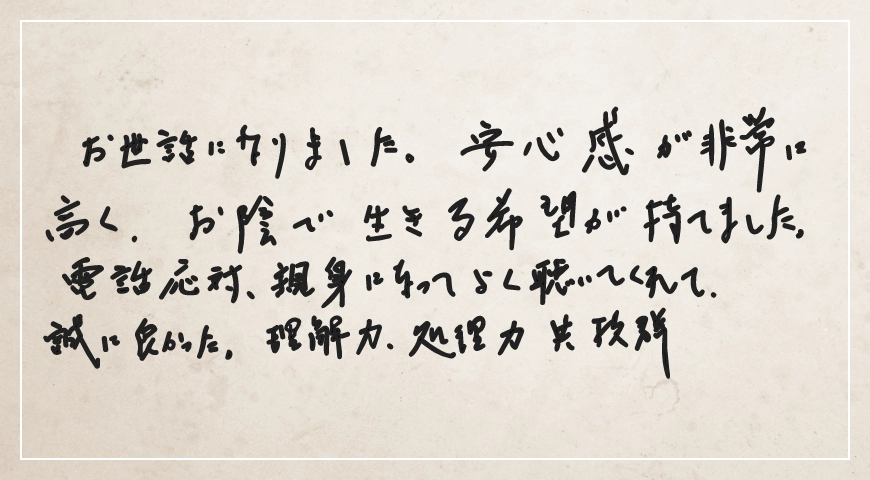 お世話になりました。安心感が非常に
高く、お陰で生きる希望が持てました。
電話応対、親身になってよく聴いてくれて、
誠に良かった。理解力、処理力共抜群